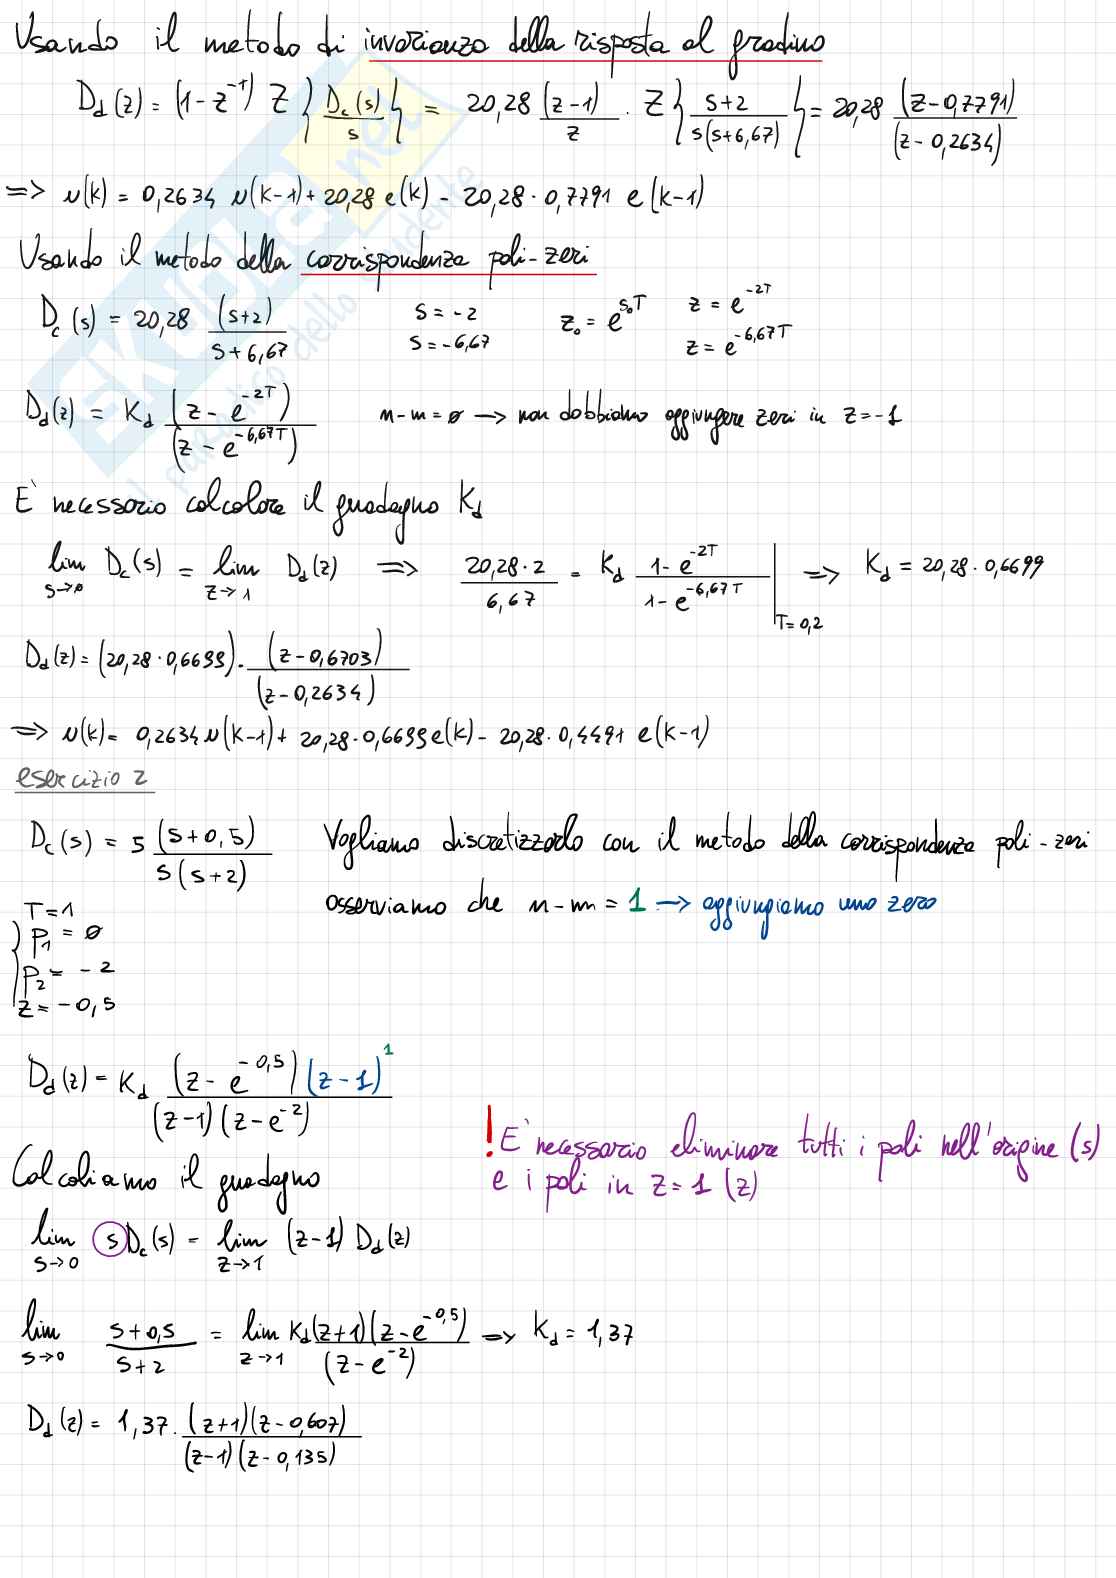 Usando il metodo di invarianza della risposta al gradino
D_d(z) = (1 - z^{-1}) Z { D_c(s) / s } = 20,28 (z-1)/z · Z { (s+2) / (s(s+6,67)) } = 20,28 (z-0,7791) / (z-0,2634)
=> u(k) = 0,2634 u(k-1) + 20,28 e(k) - 20,28 · 0,7791 e(k-1)
Usando il metodo della corrispondenza poli-zeri
D_c(s) = 20,28 (s+2) / (s+6,67) s = -2 z_0 = e^{s_0T} z = e^{-2T}
s = -6,67 z = e^{-6,67T}
D_d(z) = K_d (z - e^{-2T}) / (z - e^{-6,67T}) n-m = 0 → non dobbiamo aggiungere zeri in z=-1
E' necessario calcolare il guadagno K_d
lim_{s→0} D_c(s) = lim_{z→1} D_d(z) => (20,28 · 2) / 6,67 = K_d (1 - e^{-2T}) / (1 - e^{-6,67T}) |_{T=0,2} => K_d = 20,28 · 0,6699
D_d(z) = (20,28 · 0,6699) · (z-0,6703) / (z-0,2634)
=> u(k) = 0,2634 u(k-1) + 20,28 · 0,6699 e(k) - 20,28 · 0,4491 e(k-1)
esercizio 2
D_c(s) = 5 (s+0,5) / (s(s+2)) Vogliamo discretizzarlo con il metodo della corrispondenza poli-zeri
osserviamo che n-m = 1 → aggiungiamo uno zero
T=1
p_1 = 0
p_2 = -2
z = -0,5
D_d(z) = K_d (z - e^{-0,5}) (z-1)^1 / ((z-1)(z-e^{-2}))
! E' necessario eliminare tutti i poli nell'origine (s)
e i poli in z=1 (z)
Calcoliamo il guadagno
lim_{s→0} s D_c(s) = lim_{z→1} (z-1) D_d(z)
lim_{s→0} (s+0,5) / (s+2) = lim_{z→1} K_d (z+1)(z-e^{-0,5}) / (z-e^{-2}) => K_d = 1,37
D_d(z) = 1,37 · (z+1)(z-0,607) / ((z-1)(z-0,135))
SKUOLA.net
il paradiso dello studente